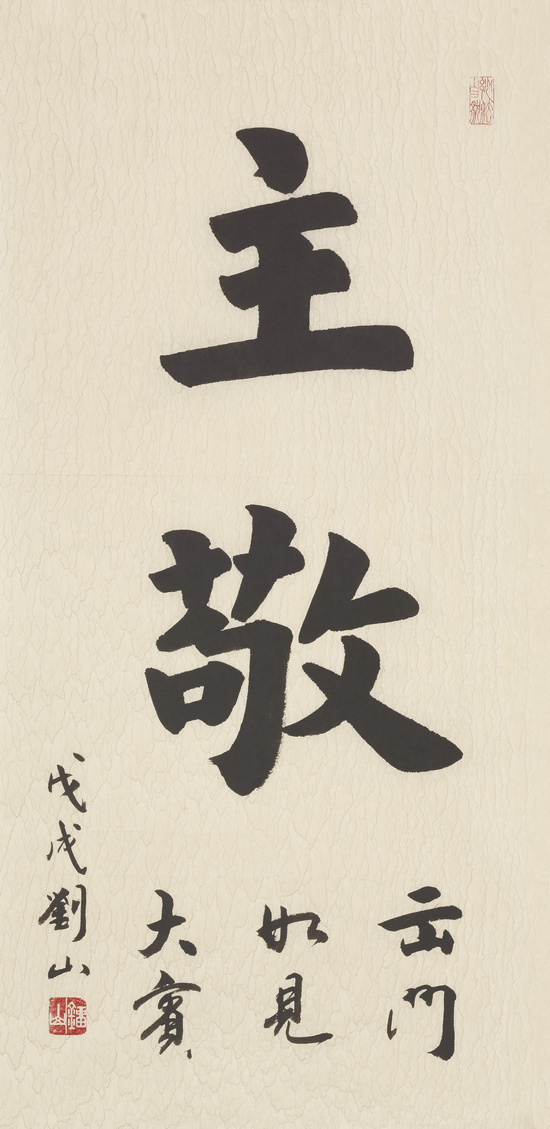 主敬
出門
如見
大賓
戊戌劉山